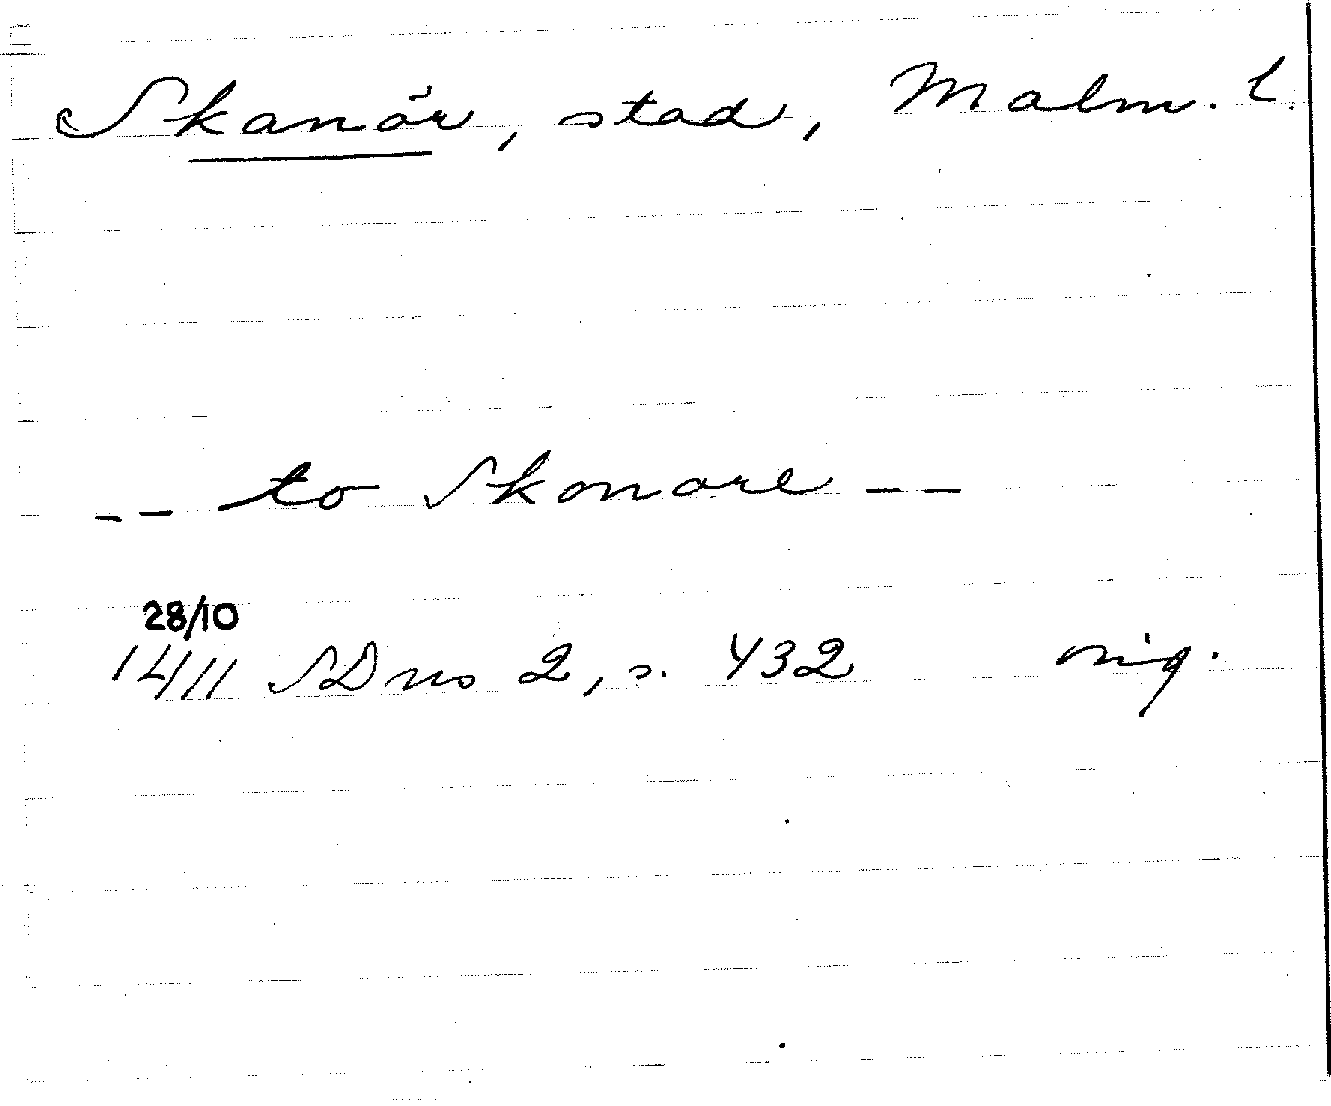 Skanör, stad, Malm. l.
-- to Skonore --
28/10
1411 SD ns 2, s. 432 orig.